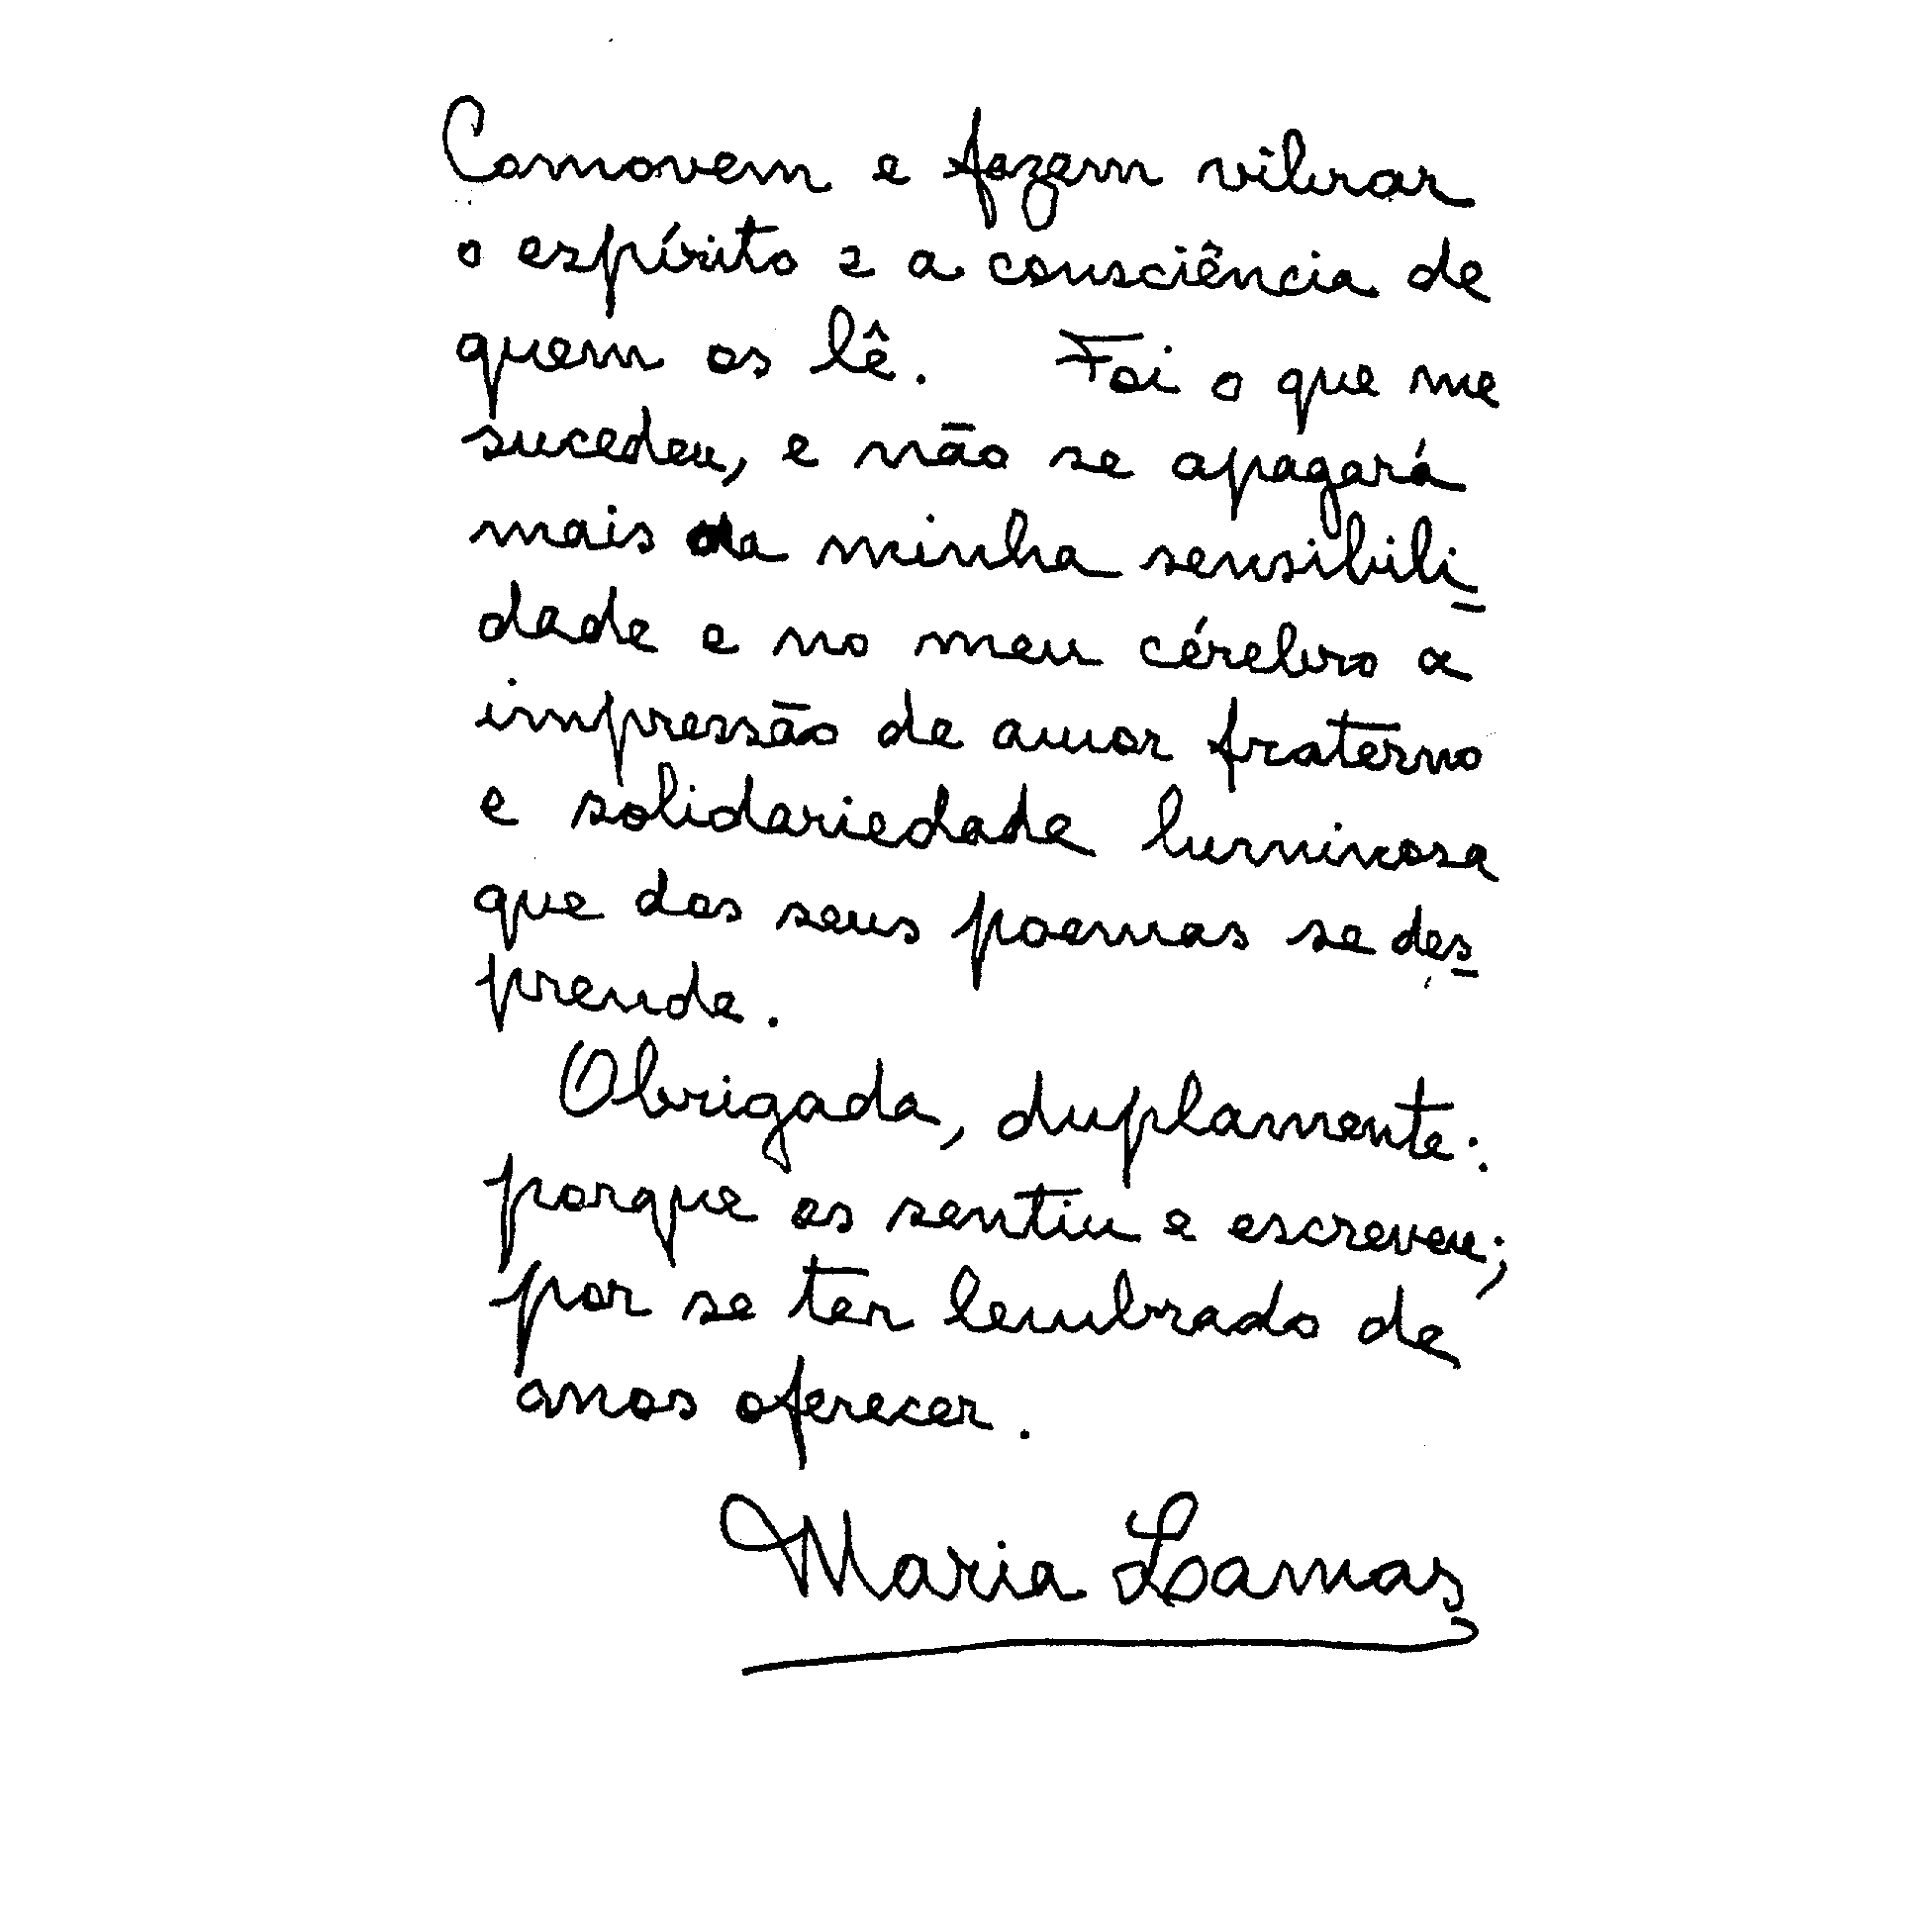 Comovem e fazem vibrar
o espírito e a consciência de
quem os lê. Foi o que me
sucedeu, e não se apagará
mais da minha sensibili-
dade e no meu cérebro a
impressão de amor fraterno
e solidariedade luminosa
que dos seus poemas se des-
prende.
Obrigada, duplamente:
porque os sentiu e escreveu;
por se ter lembrado de
anos oferecer.
Maria Lamas